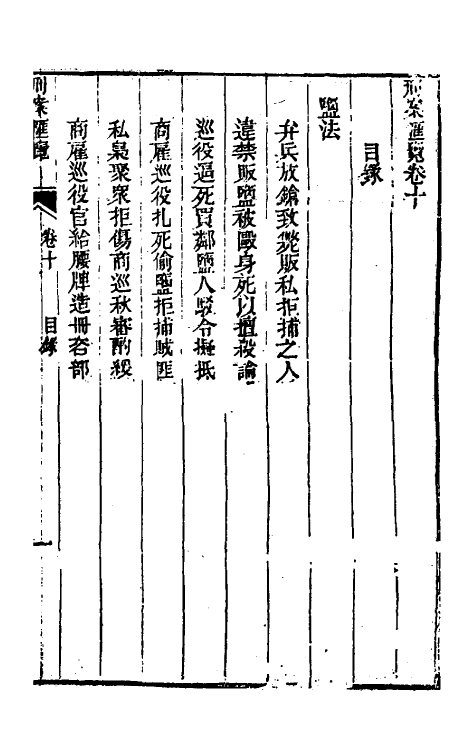 刑案匯覽卷十
目錄
鹽法
弁兵放鎗致斃販私拒捕之人
違禁販鹽被毆身死以擅殺論
巡役逼死買鄰鹽人駁令擬抵
商雇巡役扎死偷鹽拒捕賊匪
私梟聚衆拒傷商巡秋審酌緩
商雇巡役官給腰牌造冊咨部
刑案匯覽
卷十
目錄
一